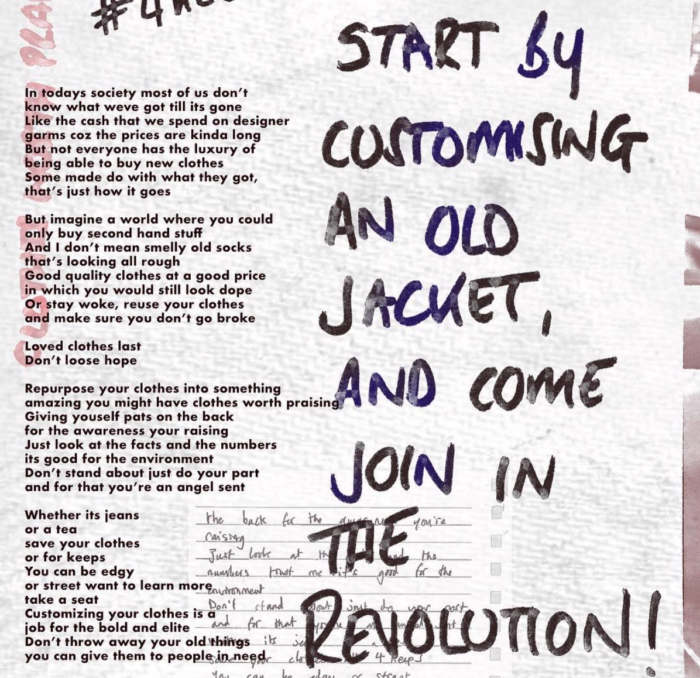 In todays society most of us don't
know what weve got till its gone
Like the cash that we spend on designer
garms coz the prices are kinda long
But not everyone has the luxury of
being able to buy new clothes
Some made do with what they got,
that's just how it goes
But imagine a world where you could
only buy second hand stuff
And I don't mean smelly old socks
that's looking all rough
Good quality clothes at a good price
in which you would still look dope
Or stay woke, reuse your clothes
and make sure you don't go broke
Loved clothes last
Don't loose hope
Repurpose your clothes into something
amazing you might have clothes worth praising
Giving youself pats on the back
for the awareness your raising
Just look at the facts and the numbers
its good for the environment
Don't stand about just do your part
and for that you're an angel sent
Whether its jeans
or a tea
save your clothes
or for keeps
You can be edgy
or street want to learn more
take a seat
Customizing your clothes is a
job for the bold and elite
Don't throw away your old things
you can give them to people in need
START BY
CUSTOMISING
AN OLD
JACKET,
AND COME
JOIN IN
THE
REVOLUTION!
the back for the you're
raising
Just look at the
numbers trust me it's good for the
environment
Don't stand about just do your part
and for that
its
4 keeps
You can be edgy or street